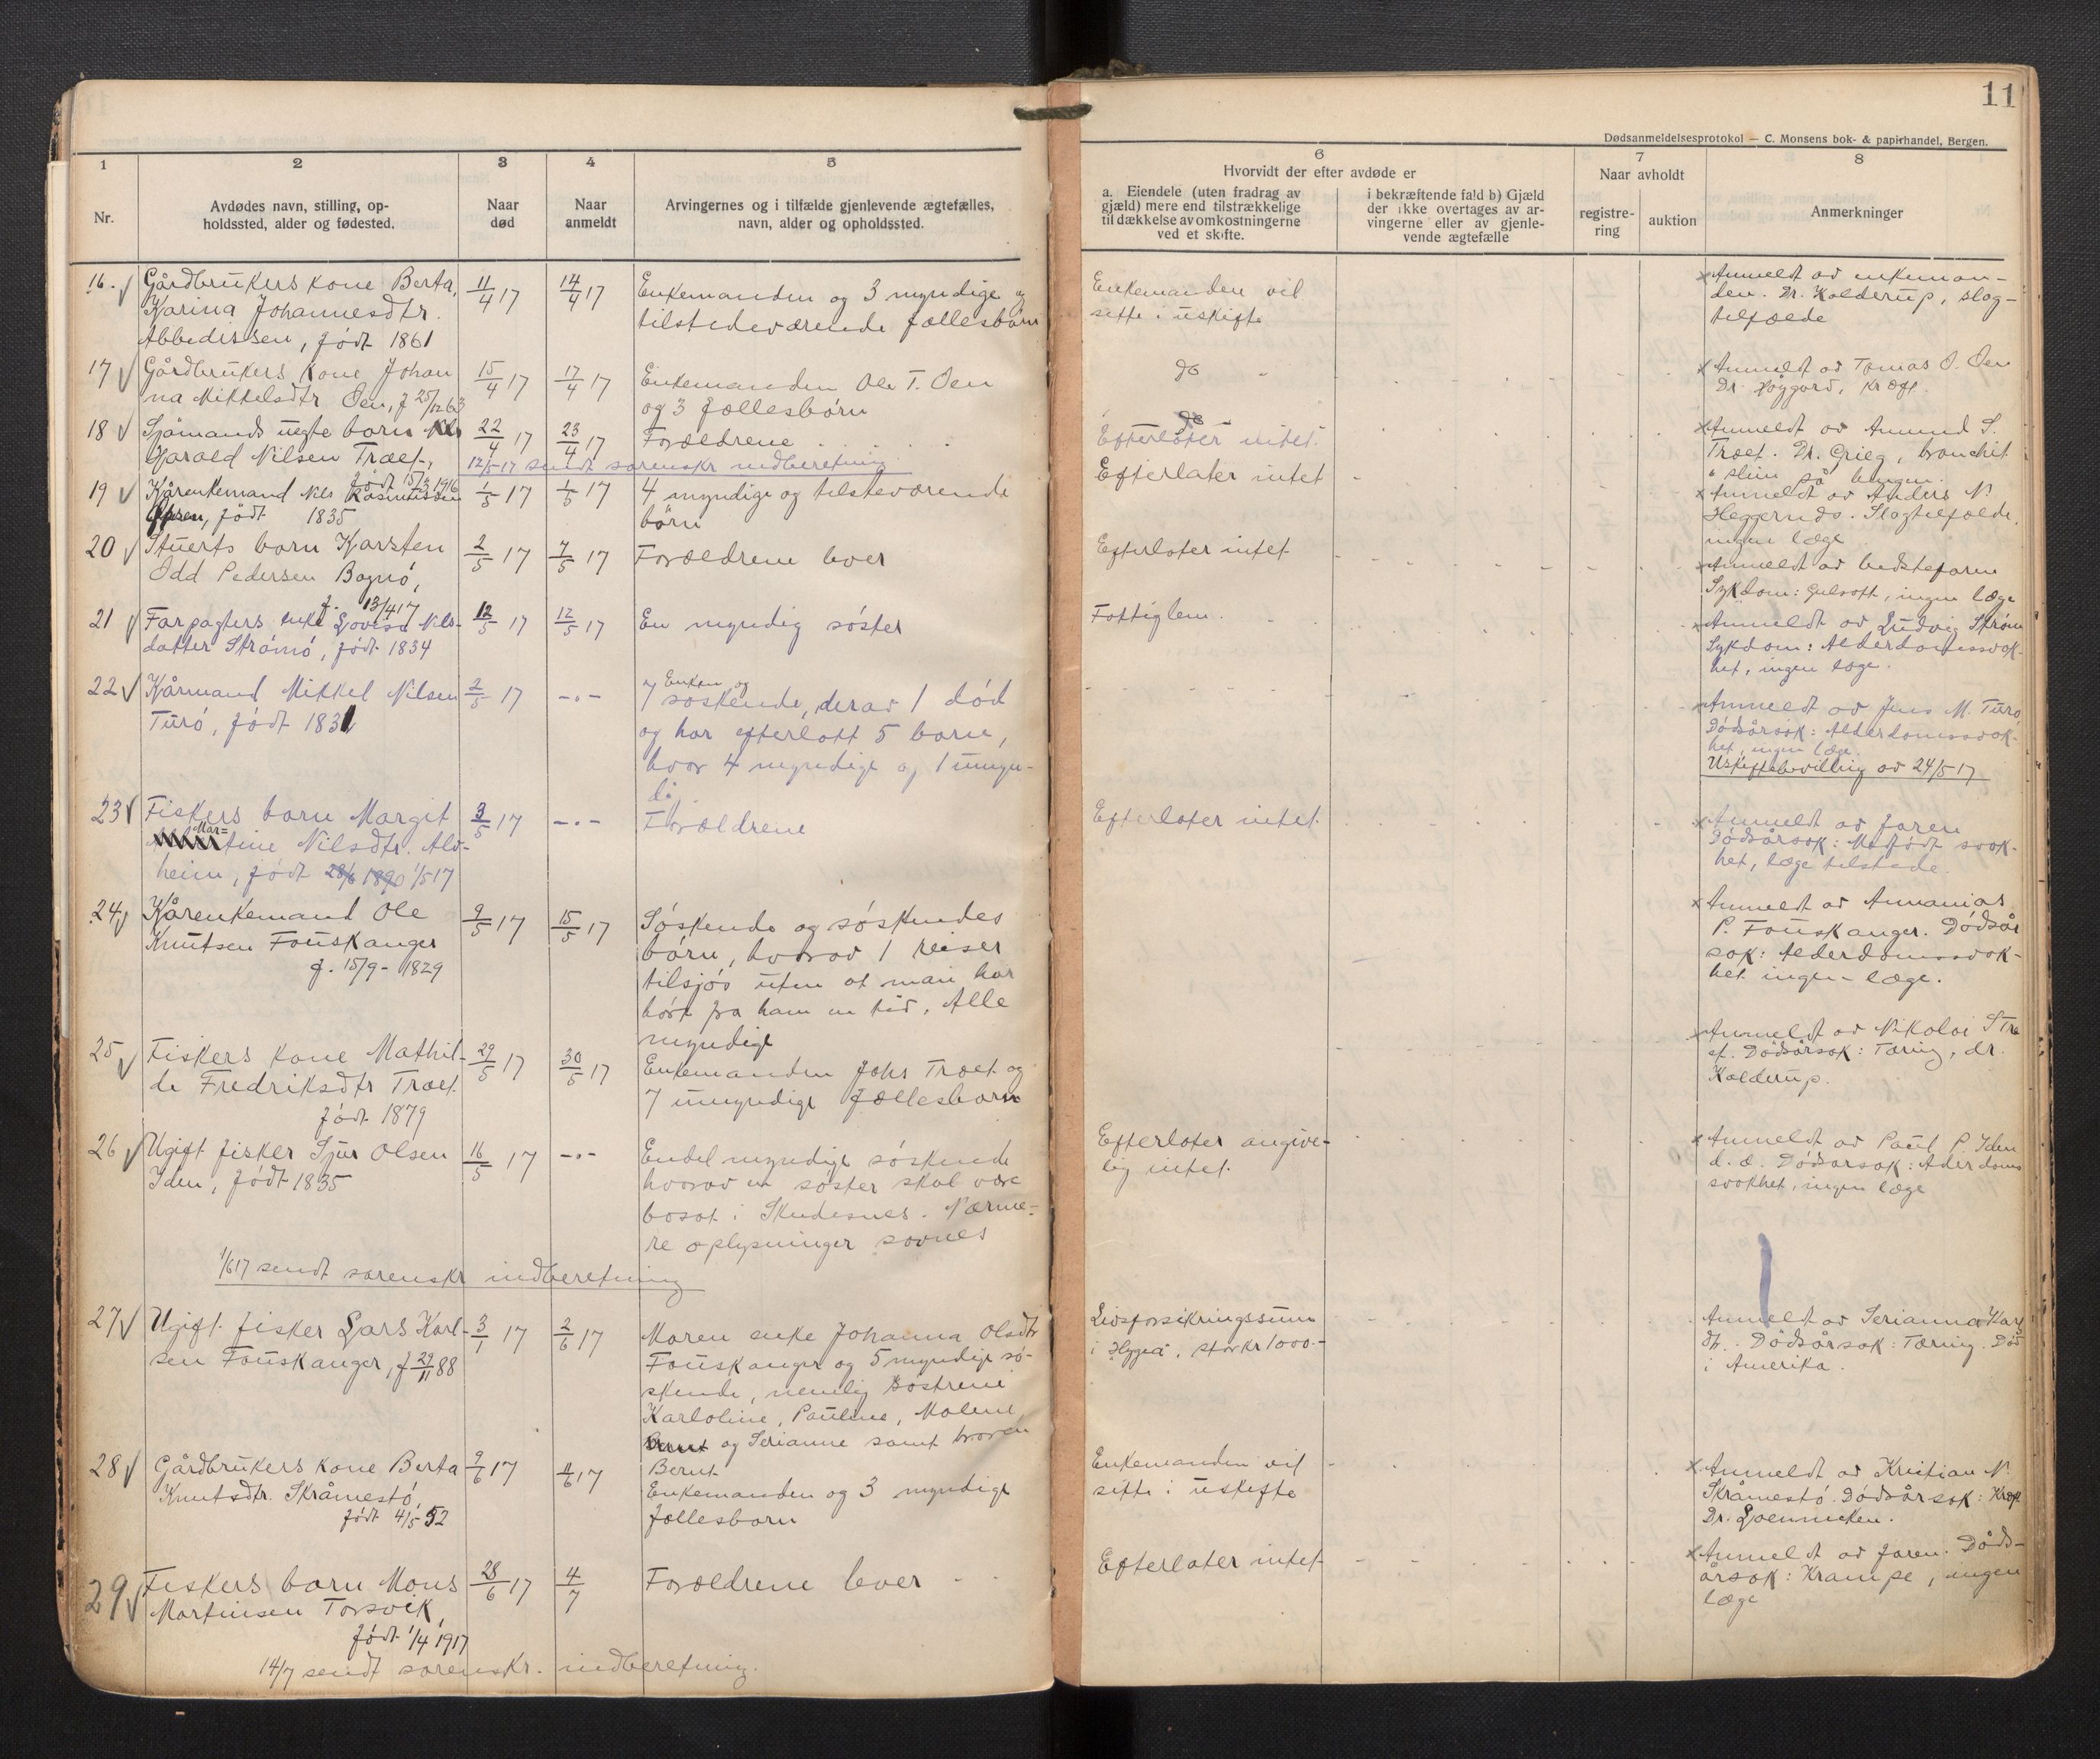 11
Dødsanmeldelsesprotokol — C. Monsens bok- & papirhandel, Bergen.
1
2
3
4
5
6
7
8
Nr.
Avdødes navn, stilling, op-
holdssted, alder og fødested.
Naar
død
Naar
anmeldt
Arvingernes og i tilfælde gjenlevende ægtefælles,
navn, alder og opholdssted.
Hvorvidt der efter avdøde er
a. Eiendele (uten fradrag av
gjæld) mere end tilstrækkelige
til dækkelse av omkostningerne
ved et skifte.
i bekræftende fald b) Gjæld
der ikke overtages av ar-
vingerne eller av gjenle-
vende ægtefælle
Naar avholdt
registre-
ring
auktion
Anmerkninger
16.
Gårdbrukers kone Berta,
Karina Johannesdtr.
Abbedissen, født 1861
11/4 17
14/4 17
Enkemanden og 3 myndige og
tilstedeværende fællesbørn
Enkemanden vil
sitte i uskifte
Anmeldt av enkeman-
den. Dr. Kolderup, slag-
tilfælde
17
Gårdbrukers kone Johan
na Mikkelsdtr Øen, f 25/12 63
15/4 17
17/4 17
Enkemanden Ole T. Øen
og 3 fællesbørn
do
Anmeldt av Tomas O. Øen
Dr. Høygard, kræft.
18
Sjømands uegte barn Nils
Harald Nilsen Træt,
født 15/3 1916
22/4 17
23/4 17
Forældrene
Efterlater intet
Anmeldt av Amund S.
Træt. Dr. Grieg, bronchit
" slim på lungen
12/5-17 sendt sorenskr indberetning
19
Kårenkemand Nils Rasmussen
født 1835
1/5 17
1/5 17
4 myndige og tilsteværende
børn
Efterlater intet
Anmeldt av Anders N.
Heggernes. Slagtilfælde,
ingen læge
20
Stuerts barn Karsten
Odd Pedersen Bognø,
f. 13/4 17
2/5 17
7/5 17
Forældrene lever
Efterlater intet
Anmeldt av bedstefaren
Sykdom: Gulsott, ingen læge
21
Forpagters enke Lovise Nils-
datter Strømø, født 1834
12/5 17
12/5 17
En myndig søster
Fattiglem.
Anmeldt av Ludvig Strøm
Sykdom: Alderdomssvak-
het, ingen læge.
22
Kårmand Mikkel Nilsen
Turø, født 1831
2/5 17
-"-
Enken og
7 søskende, derav 1 død
og har efterlatt 5 barn,
hvor 4 myndige og 1 umyn-
dig.
Anmeldt av Jens M. Turø
Dødsårsak: Alderdomssvak-
het, ingen læge.
Uskiftebevilling av 24/5 17
23
Fiskers barn Margit
Mar=
tine Nilsdtr. Alv-
heim, født 28/6 1890 1/5 17
3/5 17
-"-
Forældrene
Efterlater intet.
Anmeldt av faren
Dødsårsak: Medfødt svak-
het, læge tilstede.
24
Kårenkemand Ole
Knutsen Fouskanger
f. 15/9 - 1829
9/5 17
15/5 17
Søskende og søskendes
børn, hvorav 1 reiser
tilsjøs uten at man har
hørt fra ham en tid. Alle
myndige
Anmeldt av Annanias
P. Fouskanger. Dødsår
sak: Alderdomssvak-
het ingen læge.
25
Fiskers kone Mathil-
de Fredriksdtr Træt.
født 1879
29/5 17
30/5 17
Enkemanden Johs Træt og
7 umyndige fællesbarn
Anmeldt av Nikolai S Træ
et. Dødsårsak: Tæring, dr.
Kolderup.
26
Ugift fisker Sjur Olsen
Iden, født 1835
16/5 17
-"-
Endel myndige søskende
hvorav en søster skal være
bosat i Skudesnes. Nærme-
re oplysninger savnes
Efterlater angive-
lig intet.
Anmeldt av Paul P. Iden
d.d. Dødsårsak: Alderdoms
svakhet, ingen læge
1/6 17 sendt sorenskr indberetning
27
Ugift fisker Lars Karl-
sen Fouskanger, f 29/11 88
3/1 17
2/6 17
Moren enke Johanna Olsdtr
Fouskanger og 5 myndige sø-
skende, nemlig søstrene
Karloline, Pauline, Malene
og Serianne samt broren
Bernt
Livsforsikringssum
i "Hygea". stor kr 1000.-
Anmeldt av Serianna Karl
dtr. Dødsårsak: Tæring. Død
i Amerika.
28
Gårdbrukers kone Berta
Knutsdtr. Skråmestø,
født 4/5 52
9/6 17
11/6 17
Enkemanden og 3 myndige
fællesbarn
Enkemanden vil
sitte i uskifte
Anmeldt av Kristian N.
Skråmestø. Dødsårsak: Kræft
Dr. Loennecken.
29
Fiskers barn Mons
Martinsen Torsvik,
født 1/4 1917
28/6 17
4/7
Forældrene lever
Efterlater intet
Anmeldt av faren. Døds-
årsak: Krampe, ingen
læge
14/7 sendt sorenskr. indberetning.